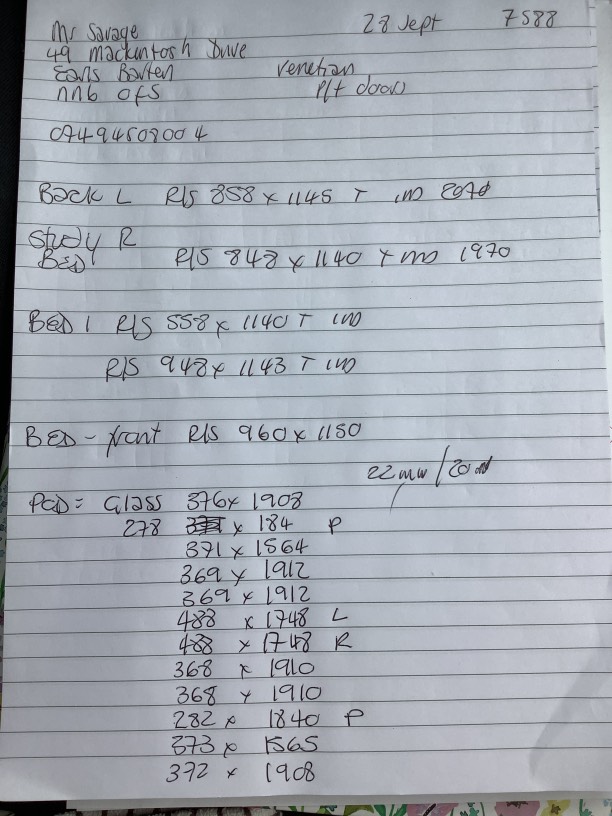 Mr Savage 28 Sept 7588
49 Mackintosh Drive
Earls Barton Venetian
NN6 0FS P/t doors
07494508004
Back L R/S 858 x 1145 T
Study R
BED R/S 848 x 1140 1970
BED 1 R/S 558 x 1140 T
R/S 948 x 1143 T
BED - front R/S 960 x 1150
22mm/20
Glass 376 x 1908
278 x 184 P
371 x 1564
369 x 1912
369 x 1912
488 x 1748 L
488 x 1748 R
368 x 1910
368 x 1910
282 x 1840 P
373 x 1565
372 x 1908